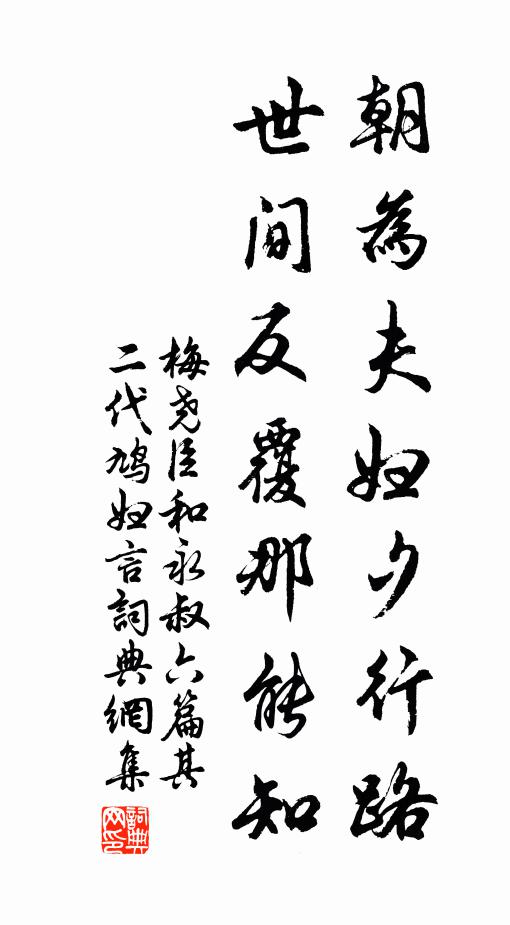 朝為夫婦夕行路
世間反覆那能知
梅尧臣和永叔六篇其
二代鳩婦言詞典網集
詞典
网印